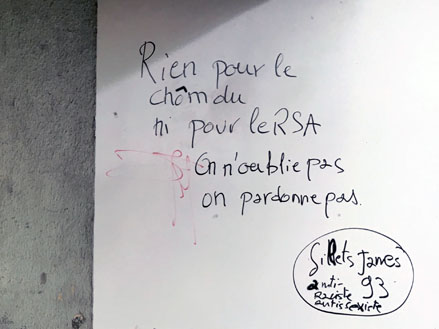 Rien pour le
chômdu
ni pour le RSA
On n'oublie pas
on pardonne pas.
Gillets Jaunes
anti- 93
Raciste
antisexiste